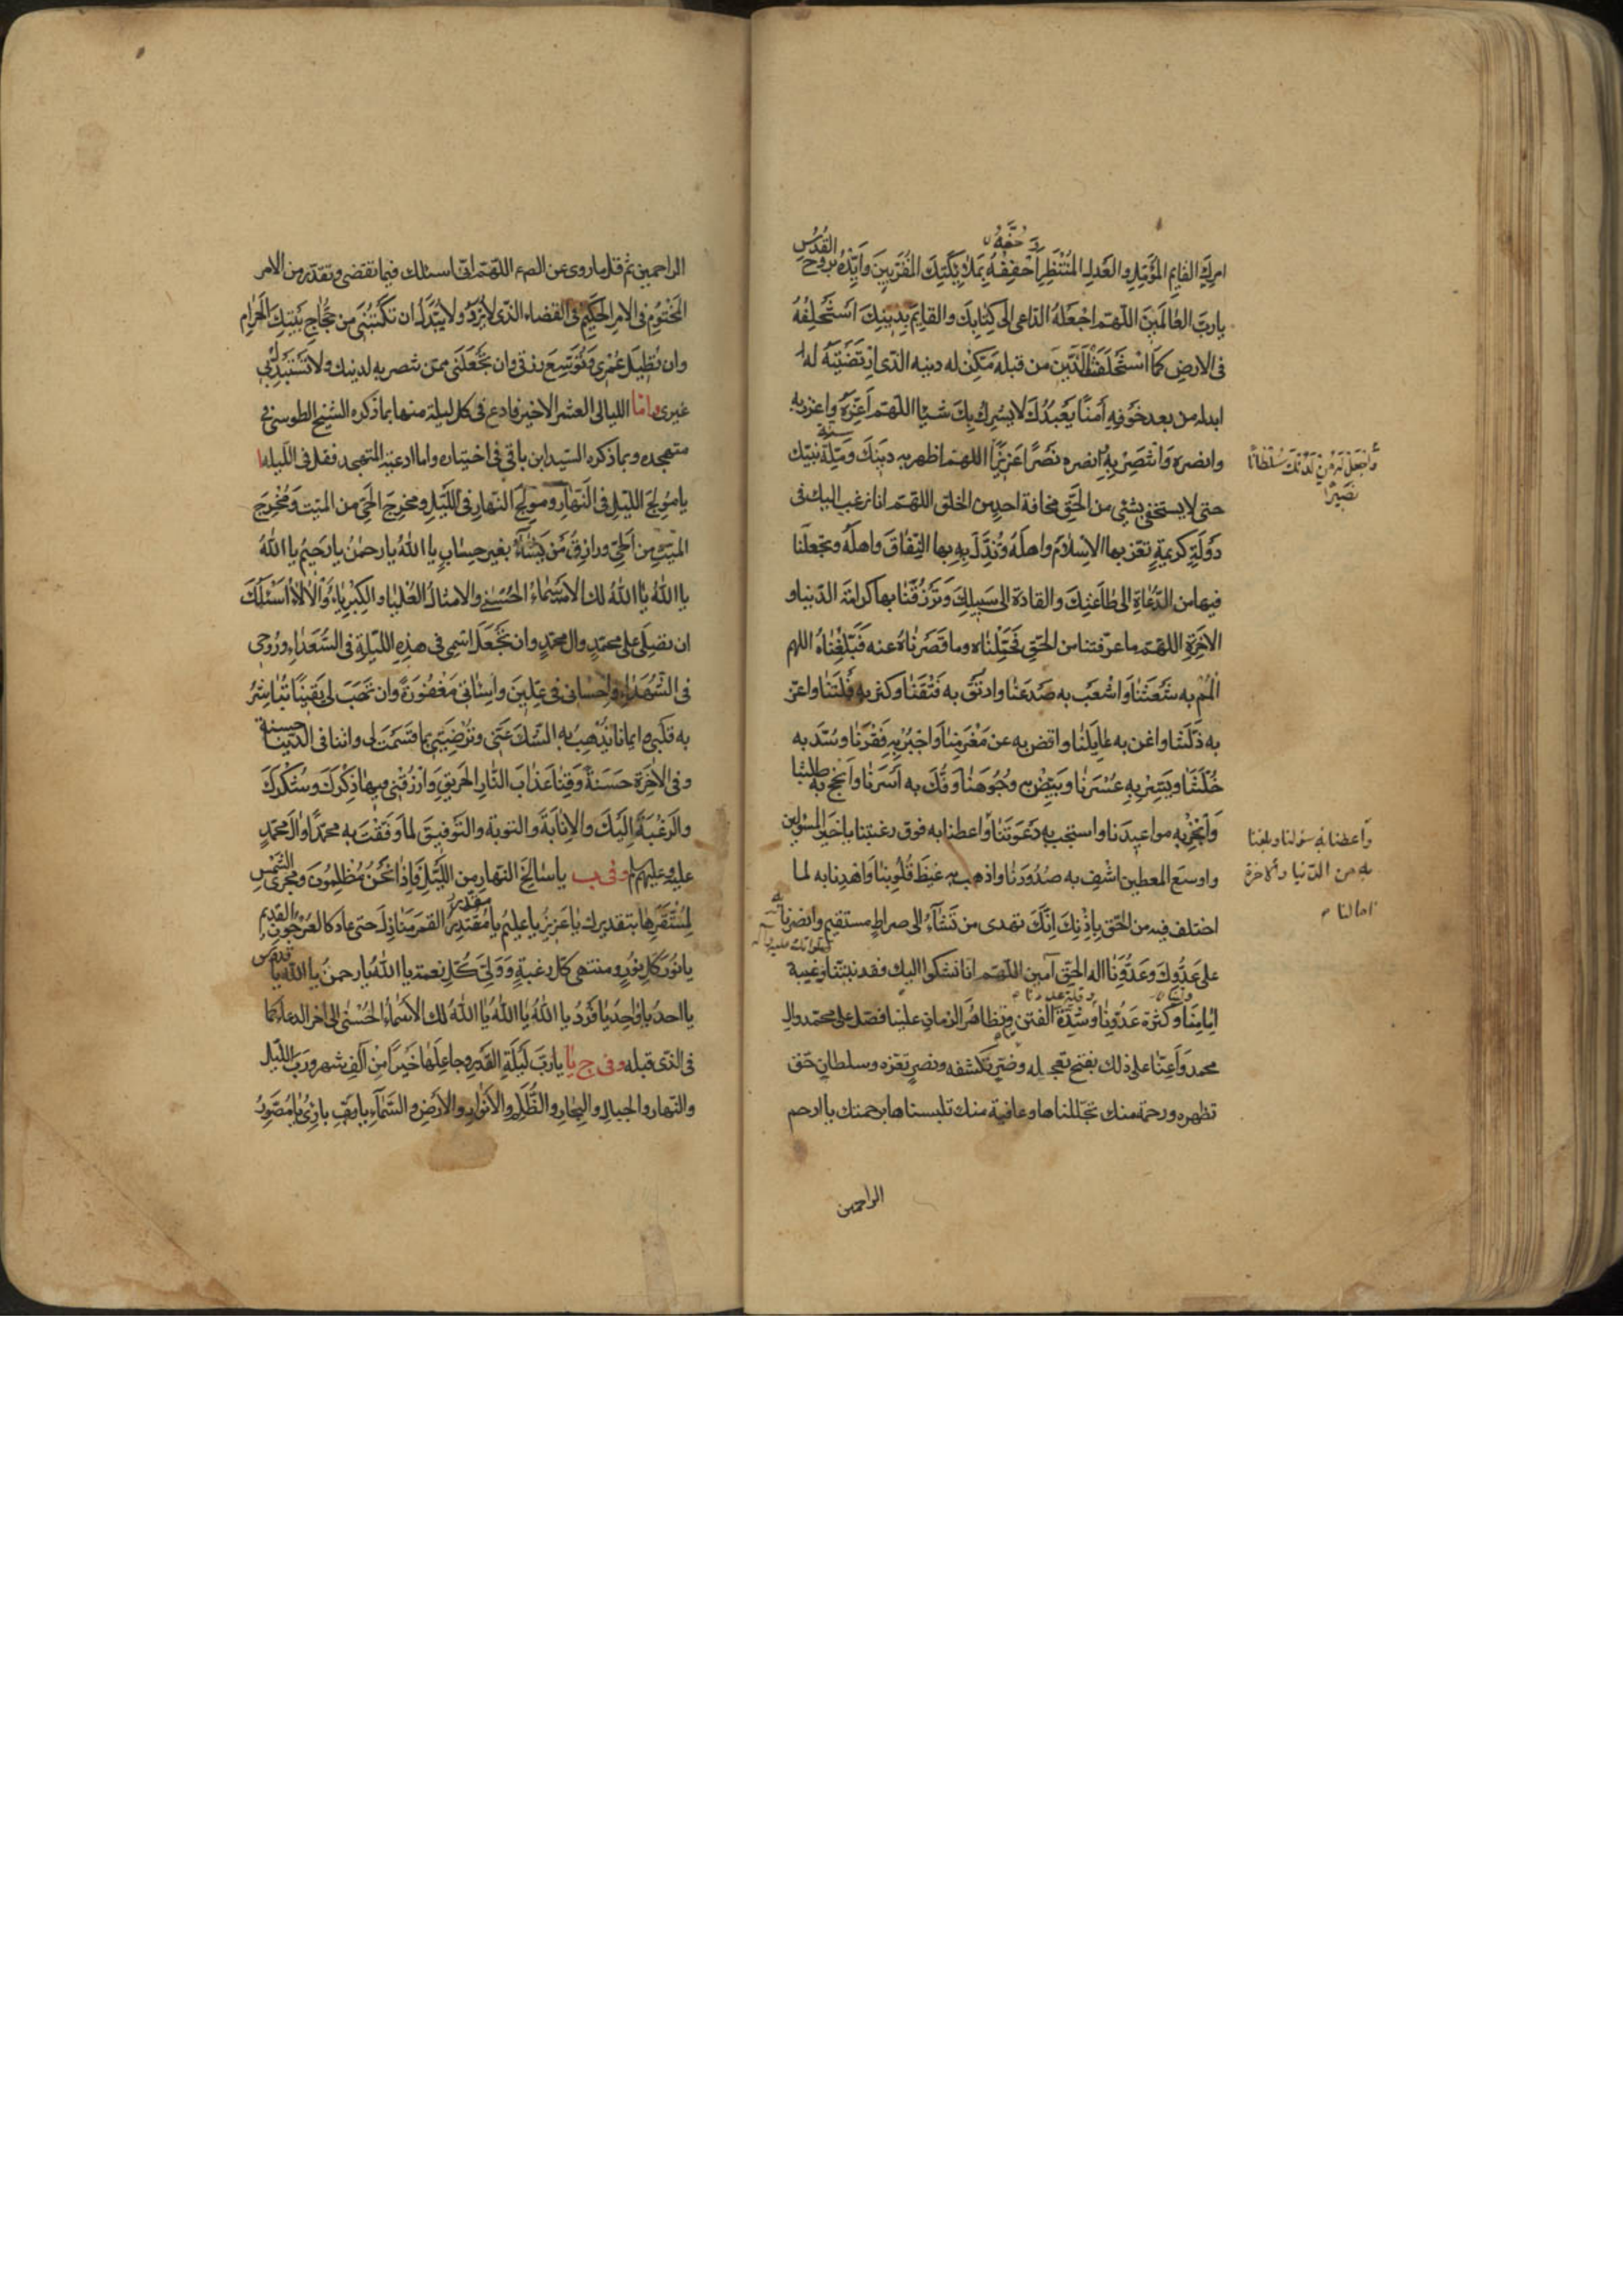 امرك القايم المؤمل والعدل المنتظر احففه بملائكتك المقربين وايده بروح القدس
يا رب العالمين اللهم اجعله الداعى الى كتابك والقايم بدينك استخلفه
فى الارض كما استخلفت الذين من قبله مكن له دينه الذى ارتضيته له
ابدله من بعد خوفه امنا يعبدك لا يشرك بك شيئا اللهم اعزه واعزز به
وانصره وانتصر به انصره نصرا عزيزا اللهم اظهر به دينك وملة نبيك
سنة
واجعل له من لدنك سلطانا
نصيرا
حتى لا يستخفى بشئ من الحق مخافة احد من الخلق اللهم انا نرغب اليك فى
دولة كريمة تعز بها الاسلام واهله وتذل بها النفاق واهله وتجعلنا
فيها من الدعاة الى طاعتك والقادة الى سبيلك وترزقنا بها كرامة الدنيا و
الاخرة اللهم ما عرفتنا من الحق فحملناه وما قصرنا عنه فبلغناه اللهم
المم به شعثنا واشعب به صدعنا وارتق به فتقنا وكثر به قلتنا واعز
به ذلتنا واغن به عايلنا واقض به عن مغرمنا واجبر به فقرنا وسد به
خلتنا ويسر به عسرنا وبيض به وجوهنا وفك به اسرنا وانجح به طلبتنا
وانجز به مواعيدنا واستجب به دعوتنا واعطنا به فوق رغبتنا يا خير المسئولين
واعطنا به سؤلنا وبلغنا
به من الدنيا والاخرة
امالنا
واوسع المعطين اشف به صدورنا واذهب به غيظ قلوبنا واهدنا به لما
اختلف فيه من الحق باذنك انك تهدى من تشاء الى صراط مستقيم وانصرنا به
على عدوك وعدونا اله الحق آمين اللهم انا نشكوا اليك فقد نبينا وغيبة
صلواتك عليه وآله
امامنا وكثرة عدونا وشدة الفتن وتظاهر الزمان علينا فصل على محمد وال
وقلة عددنا
محمد واعنا على ذلك بفتح تعجله وضر تكشفه ونصر تعزه وسلطان حق
تظهره ورحمة منك تجللناها وعافية منك تلبسناها برحمتك يا ارحم
الراحمين
الراحمين ثم قل ما روى عن الصع اللهم انى اسئلك فيما تقضى وتقدر من الامر
المحتوم فى الامر الحكيم فى القضاء الذى لا يرد ولا يبدل ان تكتبنى من حجاج بيتك الحرام
وان تطيل عمرى وتوسع رزقى وان تجعلنى ممن تنتصر به لدينك ولا تستبدل بى
غيرى واما الليالى العشر الاخير فادع فى كل ليلة منها بما ذكره الشيخ الطوسى فى
متهجده وبما ذكره السيد ابن باقى فى اختياره واما ادعية المتهجد فقل فى الليلة ا
يا مولج الليل فى النهار ومولج النهار فى الليل ومخرج الحى من الميت ومخرج
الميت من الحى ورازق من يشاء بغير حساب يا الله يا رحمن يا رحيم يا الله
يا الله يا الله لك الاسماء الحسنى والامثال العليا والكبرياء والالاء اسئلك
ان تصلى على محمد وال محمد وان تجعل اسمى فى هذه الليلة فى السعداء وروحى
فى الشهداء واحسانى فى عليين واساءتى مغفورة وان تهب لى يقينا تباشر
به قلبى وايمانا يذهب به الشك عنى وترضينى بما قسمت لى واتنا فى الدنيا حسنة
وفى الاخرة حسنة وقنا عذاب النار الحريق وارزقنى فيها ذكرك وشكرك
والرغبة اليك والانابة والتوبة والتوفيق لما وفقت به محمدا وال محمد
عليه وعليهم لم وفى ب يا سالخ النهار من الليل فاذا نحن مظلمون ومجرى الشمس
لمستقرها بتقديرك يا عزيز يا عليم يا مقتدر القمر منازل حتى عاد كالعرجون القديم
مقدر
يا نور كل نور ومنتهى كل رغبة وولى كل نعمة يا الله يا رحمن يا الله يا قدوس
يا احد يا واحد يا فرد يا الله يا الله يا الله لك الاسماء الحسنى الى اخر الدعاء كما
فى الذى قبله وفى ج يا يا رب ليلة القدر وجاعلها خيرا من الف شهر ورب الليل
والنهار والجبال والبحار والظلم والانوار والارض والسماء يا رب يا بارئ يا مصور